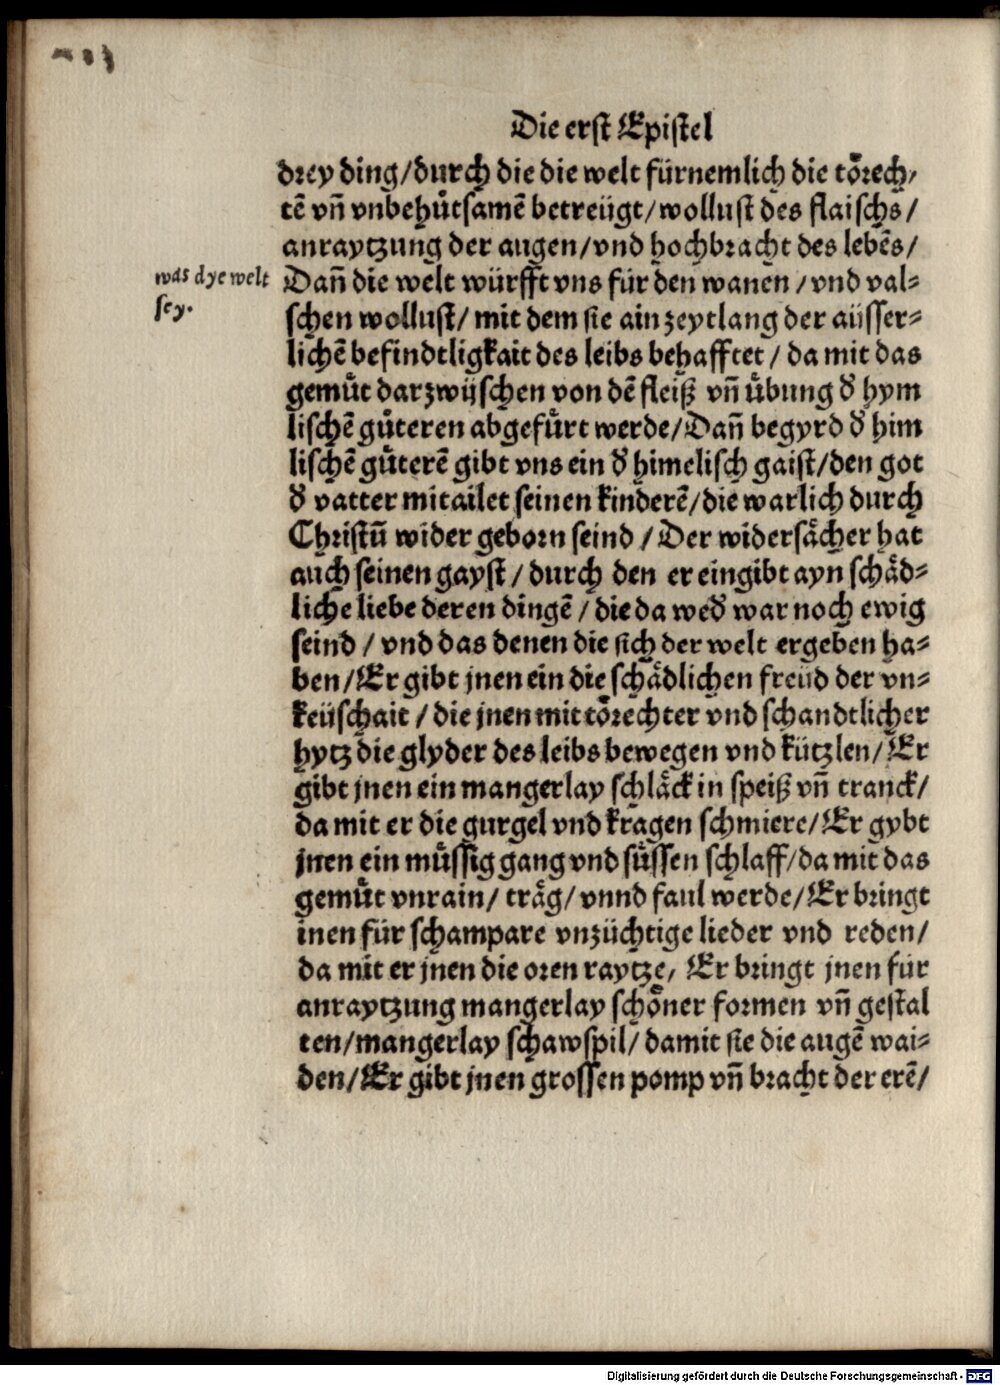 Die erst Epistel
drey ding/durch die die welt fürnemlich die toͤrech/
tẽ vñ vnbehuͤtsamẽ betreügt/wollust des flaischs/
anraytzung der augen/vnd hochbracht des lebẽs/
was dye welt
sey.
Dañ die welt würfft vns für den wanen/vnd val⸗
schen wollust/ mit dem sie ain zeytlang der aüsser⸗
lichẽ befindtligkait des leibs behafftet/ da mit das
gemuͤt darzwijschen von dẽ fleiß vñ uͤbung d̕ hym
lischẽ guͤteren abgefuͤrt werde/Dañ begyrd d̕ him
lischẽ guͤterẽ gibt vns ein d̕ himelisch gaist/den got
d̕ vatter mitailet seinen kinderẽ/die warlich durch
Christũ wider geborn seind/Der widersaͤcher hat
auch seinen gayst/ durch den er eingibt ayn schaͤd⸗
liche liebe deren dingẽ/ die da wed̕ war noch ewig
seind/ vnd das denen die sich der welt ergeben ha⸗
ben/Er gibt jnen ein die schaͤdlichen freüd der vn⸗
keüschait/ die jnen mit toͤrechter vnd schandtlicher
hytz die glyder des leibs bewegen vnd kützlen/Er
gibt jnen ein mangerlay schlaͤck in speiß vñ tranck/
da mit er die gurgel vnd kragen schmiere/Er gybt
jnen ein muͤssig gang vnd suͤssen schlaff/da mit das
gemuͤt vnrain/ traͤg/ vnnd faul werde/Er bringt
inen für schampare vnzüchtige lieder vnd reden/
da mit er jnen die oren raytze, Er bringt jnen für
anraytzung mangerlay schoͤner formen vñ gestal
ten/mangerlay schawspil/ damit sie die augẽ wai⸗
den/Er gibt jnen grossen pomp vñ bracht der erẽ/
Digitalisierung gefördert durch die Deutsche Forschungsgemeinschaft - DFG